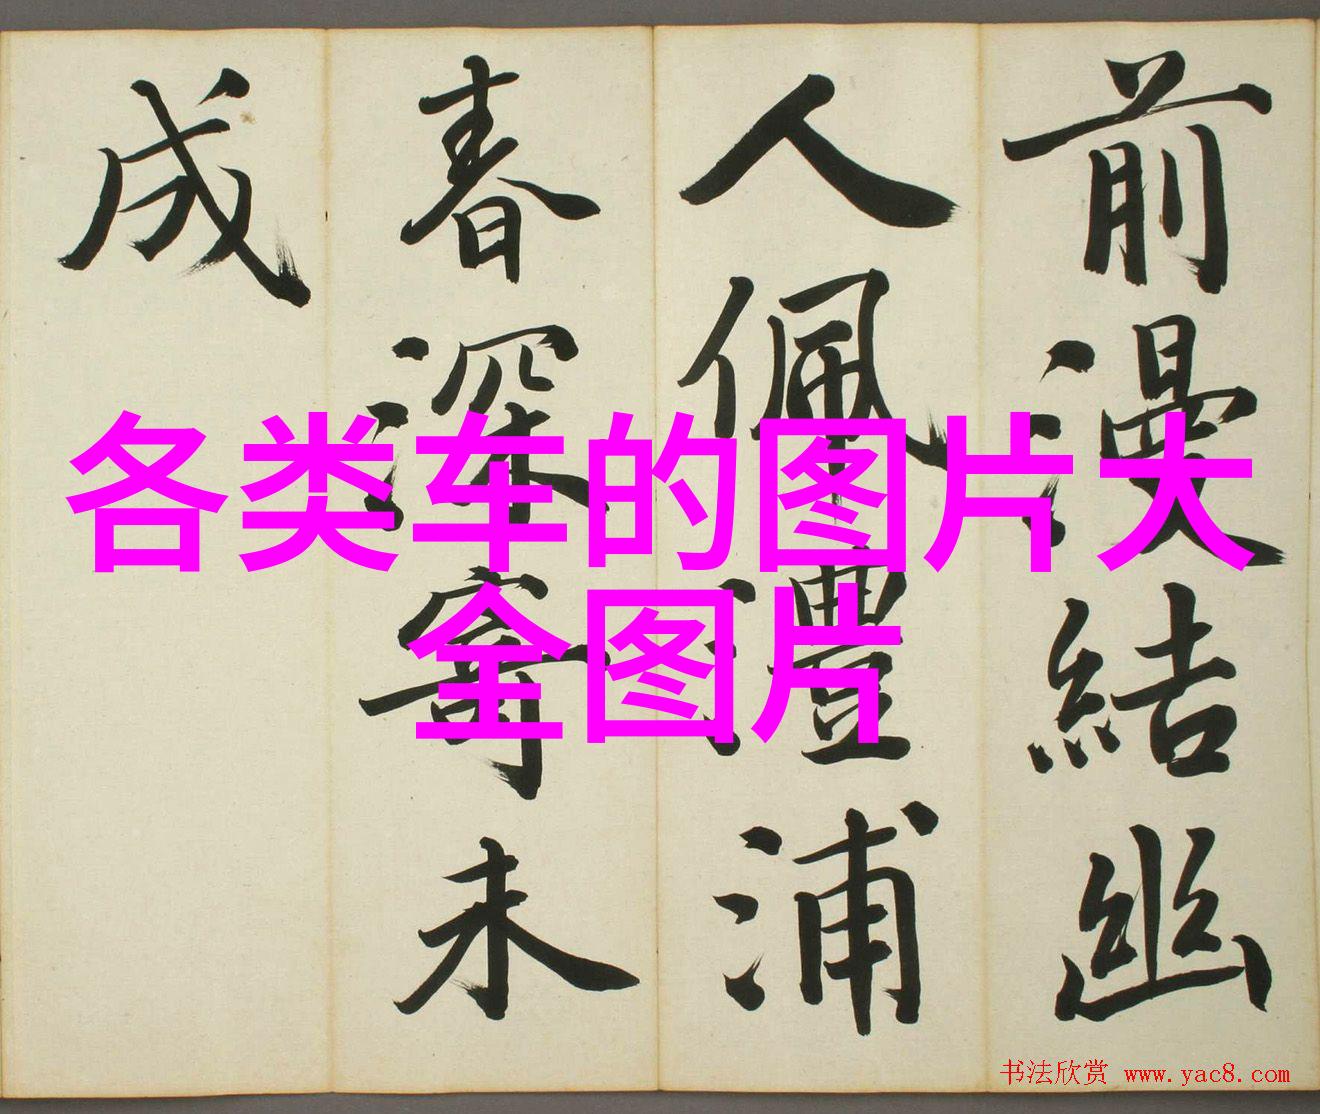 前漫結幽
人佩澧浦
春深寄未
成
各类车的图片大
全图片
书法欣赏 www.yac8.com